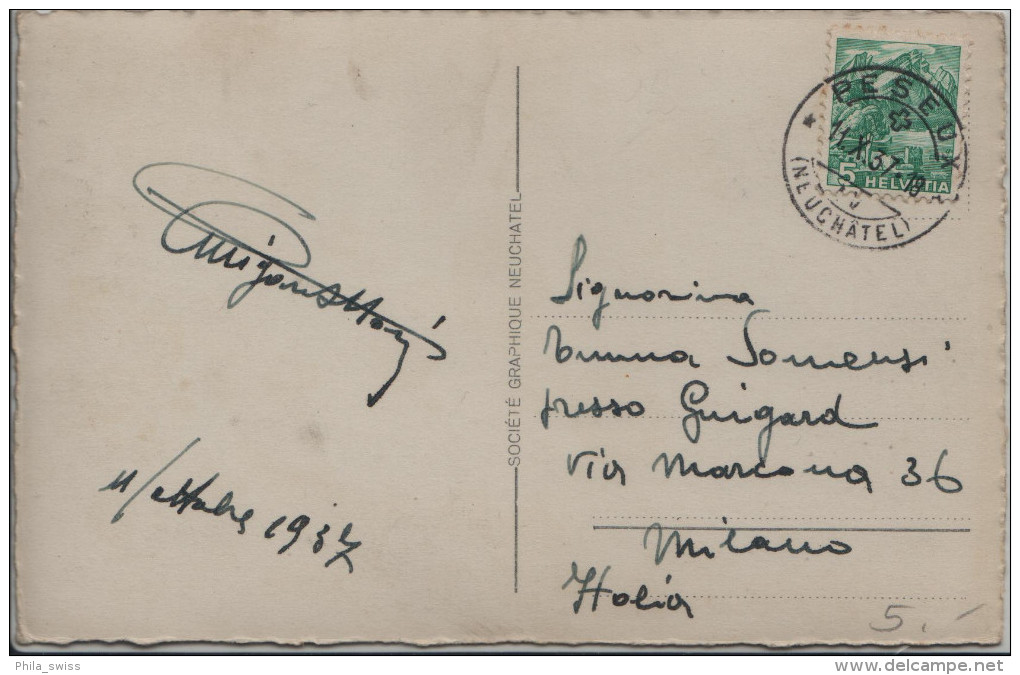 11/ottobre 1937
SOCIÉTÉ GRAPHIQUE NEUCHATEL
PESEUX
11.X.37-18
(NEUCHÂTEL)
5 HELVETIA
Signorina
Emma Somensi
presso Guigard
Via Marcona 36
Milano
Italia
5.-
Phila_swiss
www.delcampe.net